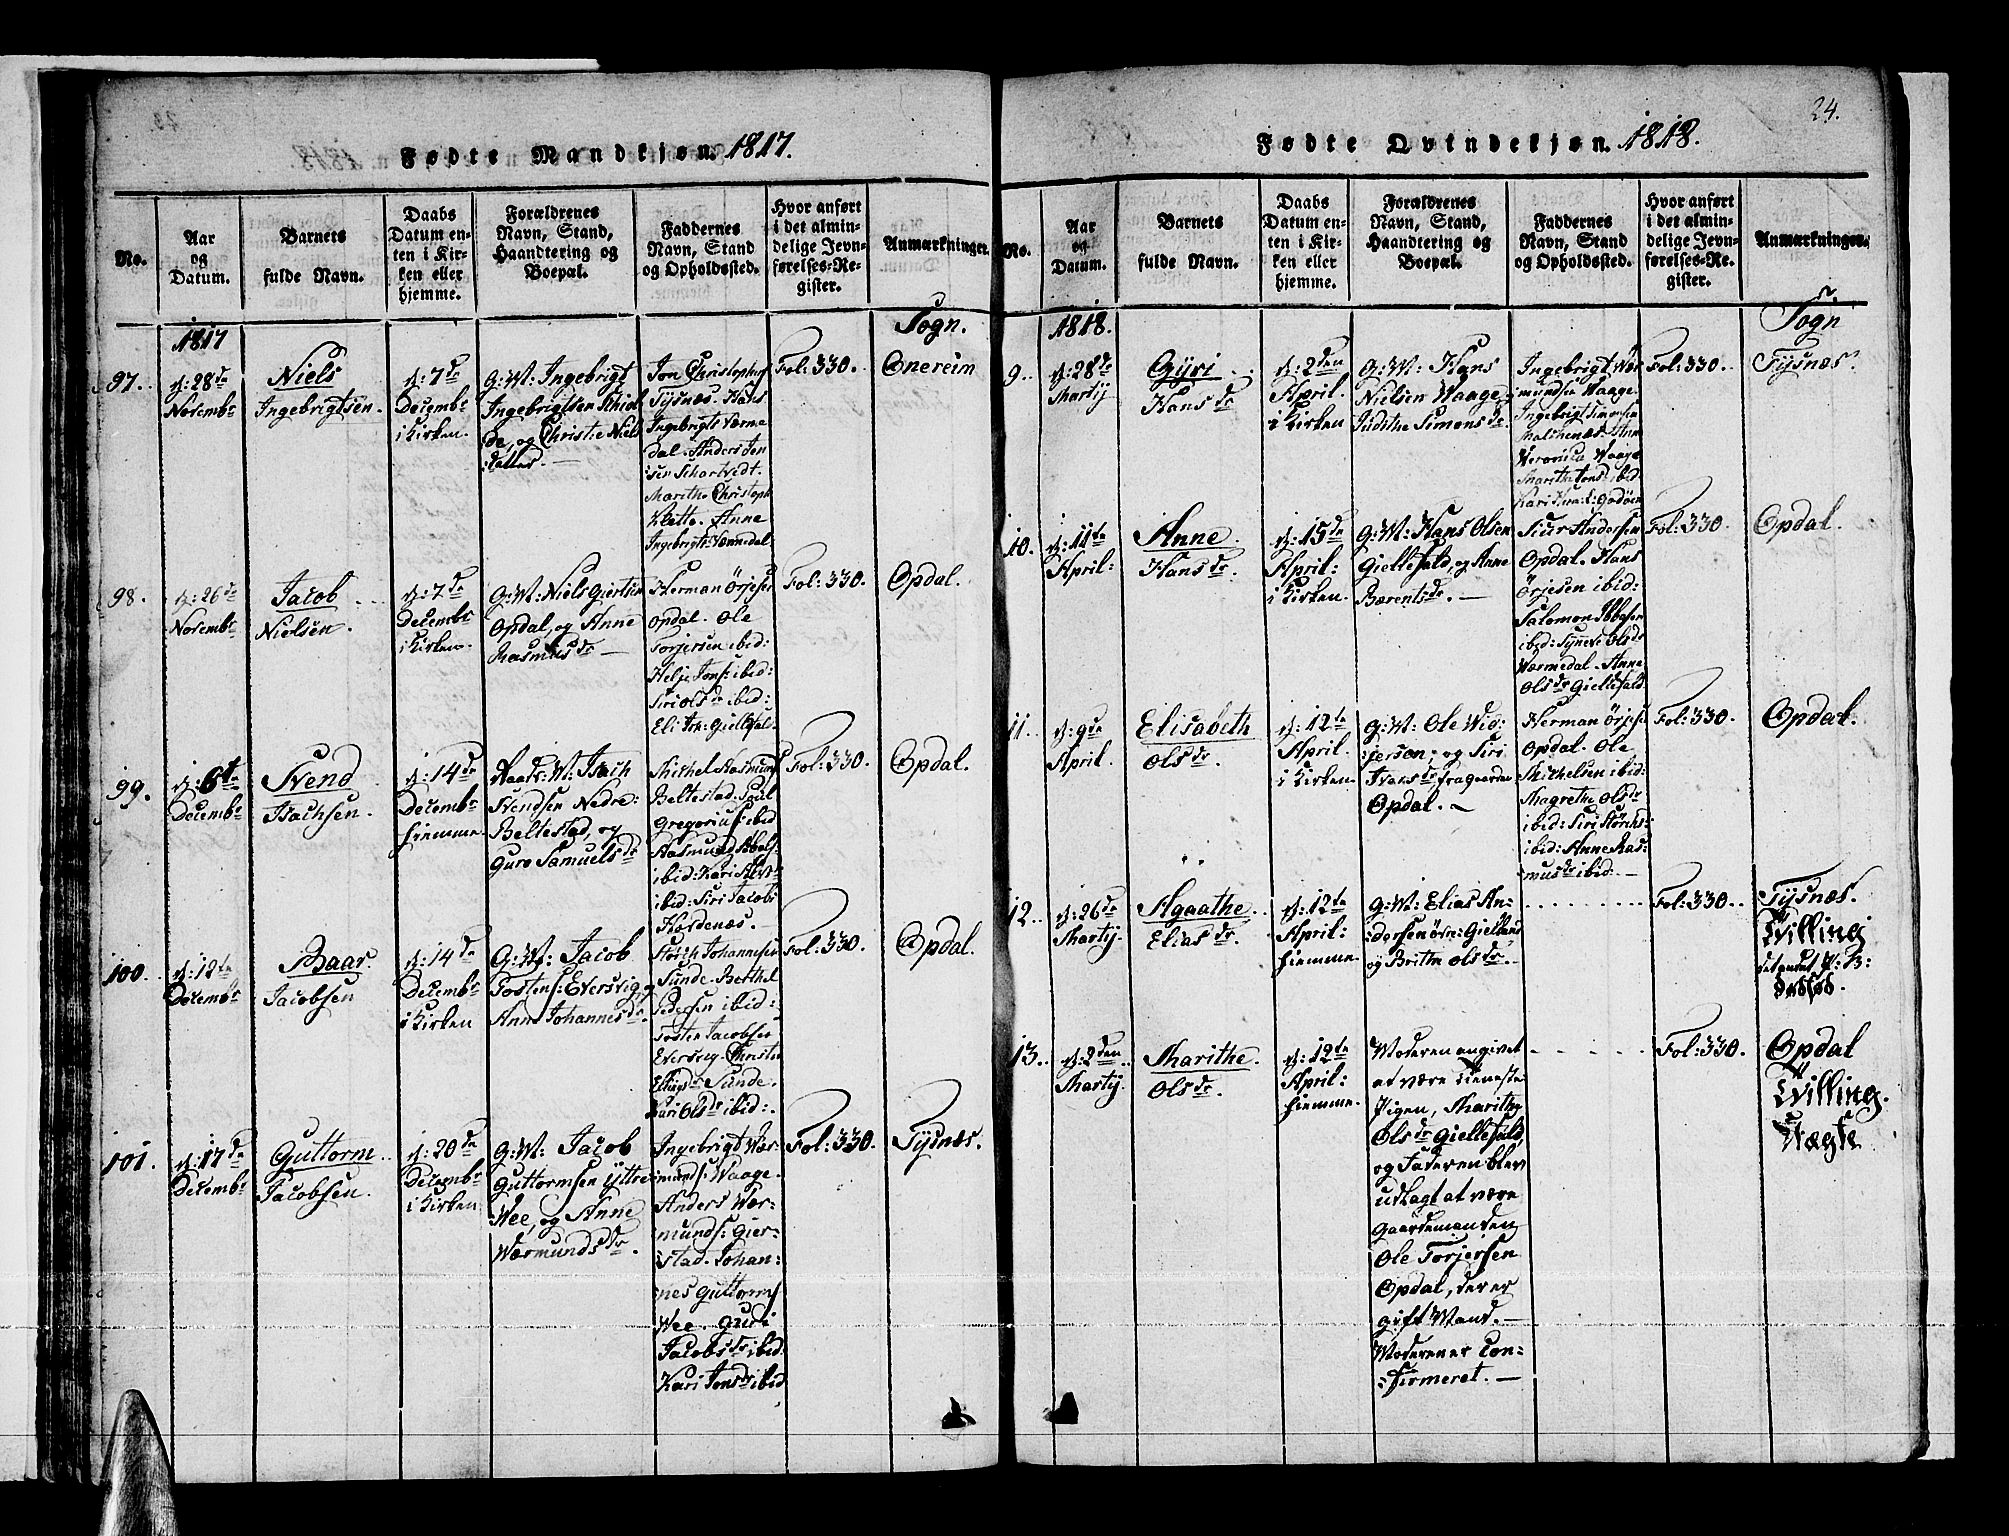 Fødte Mandkjøn. 1817.
No.
Aar
og
Datum.
Barnets
fulde Navn.
Daabs
Datum en-
ten i Kir-
ken eller
hjemme.
Forældrenes
Navn, Stand,
Haandtering og
Boepæl.
Faddernes
Navn, Stand
og Opholdssted.
Hvor anført
i det almin-
delige Jevn-
førelses-Re-
gister.
Anmærkninger.
1817
Sogn.
97.
d: 28de
Novembr
Niels
Ingebrigtsen.
d: 7de
Decembr
i Kirken.
G: M: Ingebrigt
Ingebrigtsen
og Christie Niels
datter.
Jon Christophers
Tysnæs. Hans
Ingebrigts Værme
dal. Anders Jen
sen
Marithe Christoph
Klette. Anne
Ingebrigts: Værmedal
Fol: 330.
Onereim
98.
d: 26de
Novembr
Jacob
Nielsen.
d: 7de
Decembr
i Kirken.
G: M: Niels Giertsen
Opdal, og Anne
Rasmusdr
Herman Örjesen
Opdal. Ole
Torjersen ibid:
Helje Jons: ibid:
Siri Olsdr ibid:
Eli
Fol: 330.
Opdal.
99.
d: 6te
Decembr
Svend
Isachsen.
d: 14de
Decembr
hiemme
M: Isach
Svendsen Nedre
Beltestad, og
Guro Samuelsdr
Michel Rasmuss
Beltestad. Poul
Gregorius: ibid
Rasmund
ibid: Kari
ibid: Siri Jacobs
Hordenæs.
Fol: 330.
Opdal.
100.
d: 12te
Decembr
Baar
Jacobsen
d: 14de
Decembr
i Kirken
G: M: Jacob
Tostens: Eversvig, og
Anne Johannesdr.
Störch Johannesen
Sunde. Berthel
Pedersen ibid:
Tosten Jacobsen
Eversvig. Christi
Sunde.
Kari Olsdr ibid:
Fol: 330.
Opdal.
101.
d: 17de
Decembr
Guttorm
Jacobsen.
d: 20de
Decembr
i Kirken
G: M: Jacob
Guttormsen Yttre
Wee, og Anne
Wærmundsdr.
Ingebrigt Wær-
munds: Waage.
Anders Wær-
munds: Gier-
stad. Johan-
nes Guttorms
Wee. Guri
Jacobsdr ibid:
Kari Jonsdr ibid
Fol: 330.
Tysnæs.
24.
Fødte Qvindekjøn. 1818.
No.
Aar
og
Datum.
Barnets
fulde Navn.
Daabs
Datum en-
ten i Kir-
ken eller
hjemme.
Forældrenes
Navn, Stand,
Haandtering og
Boepæl.
Faddernes
Navn, Stand
og Opholdssted.
Hvor anført
i det almin-
delige Jevn-
førelses-Re-
gister.
Anmærkninger.
1818.
Sogn
9.
d: 28de
Martij
Gyri
Hansdr
d: 2den
April.
i Kirken
G: M: Hans
Nielsen Waage,
Judithe Simonsdr.
Ingebrigt Wær
mundsen Waage.
Ingebrigt Simonsen
Malthenæs. Anne
Veronica Waage
Marithe Jonsd: ibid
Kari
Fol: 330.
Tysnæs.
10.
d: 11te
April:
Anne
Hansdr.
d: 15de
April:
i Kirken.
G: M: Hans Olsen
Giellefald, og Anne
Bærentsdr.
Siur Andersen
Opdal. Hans
Örjesen ibid:
Salomon
ibid: Synneve Olsdr
Wærmedal. Anne
Olsdr Giellefald.
Fol: 330.
Opdal.
11.
d: 9de
April.
Elisabeth
Olsdr.
d: 12te
April.
i Kirken
G: M: Ole Wig-
jersen, og Siri
Ivarsdr fra gaarden
Opdal.
Herman Örjesen
Opdal. Ole
Michelsen ibid:
Magrethe Olsdr
ibid: Siri Störchs:
ibid: Anne Ras
musdr ibid:
Fol: 330.
Opdal.
12.
d: 26de
Martij.
Agaathe
Eliasdr.
d: 12te
April:
hiemme
G: M: Elias An-
dersen
og Britthe Olsdr.
Fol: 330.
Tysnæs.
Tvilling
det andet
dødfød.
13.
d: 2den
Martij.
Marithe
Olsdr.
d: 12te
April:
hiemme.
Moderen angivet
at være tieneste
Pigen, Marithe
Olsdr Giellefald,
og Faderen blev
udlagt at være
Gaardemanden
Ole Torjersen
Opdal, der er
gift Mand.
Moderen er Con-
firmeret.
Fol: 330.
Opdal
Tvilling.
Uægte